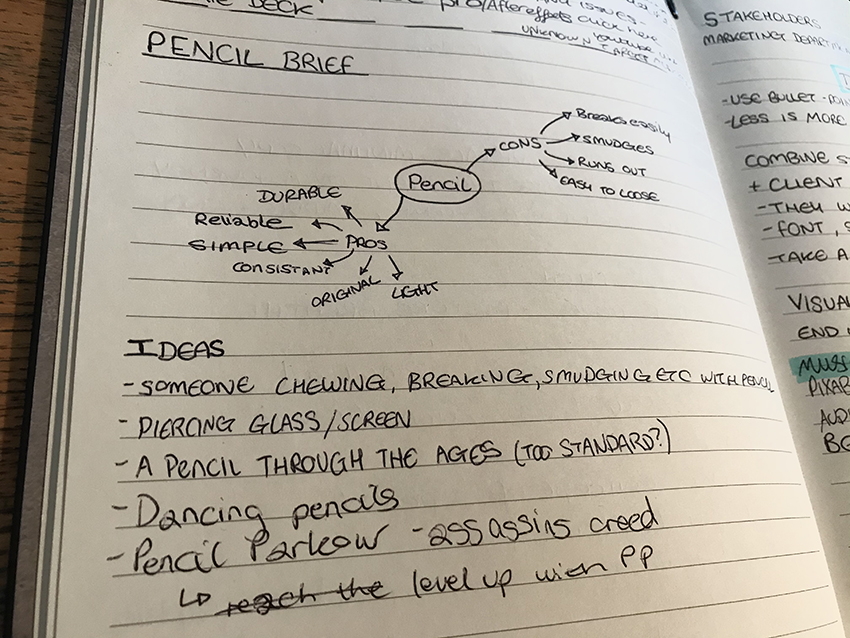 DECK
PRO/Aftereffects click here
ISSUES.
Youtube
UNKNOWN TARGET
PENCIL BRIEF
Pencil
CONS
Breaks easily
SMUDGES
RUNS OUT
EASY TO LOOSE
PROS
DURABLE
Reliable
SIMPLE
CONSISTANT
ORIGINAL
LIGHT
IDEAS
- SOMEONE CHEWING, BREAKING, SMUDGING ETC WITH PENCIL
- PIERCING GLASS/SCREEN
- A PENCIL THROUGH THE AGES (TOO STANDARD?)
- Dancing pencils
- Pencil Parkour - assassins creed
↳ reach the level up with PP
STAKEHOLDERS
MARKETING
- USE BULLET -
- LESS IS MORE
COMBINE
+ CLIENT
- THEY
- FONT,
- TAKE A
VISUAL
END
MUSIC
PIXAB
AUDI